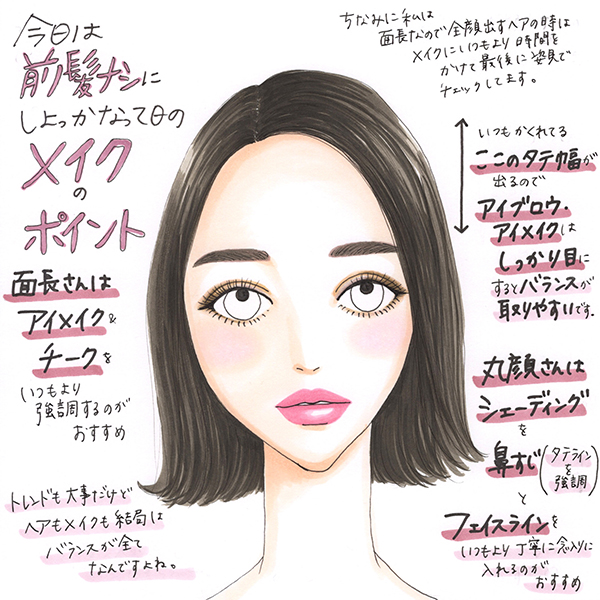 今日は
前髪ナシに
しよっかなって日の
メイク
の
ポイント
ちなみに私は
面長なので全顔出すヘアの時は
メイクにいつもより時間を
かけて最後に姿見で
チェックしてます。
いつもかくれてる
ここのタテ幅が
出るので
アイブロウ・
アイメイクは
しっかり目に
するとバランスが
取りやすいです。
面長さんは
アイメイク&
チークを
いつもより
強調するのが
おすすめ
丸顔さんは
シェーディング
を
鼻すじ(タテラインを強調)
と
フェイスラインを
いつもより丁寧に念入りに
入れるのが
おすすめ
トレンドも大事だけど
ヘアもメイクも結局は
バランスが全て
なんですよね。